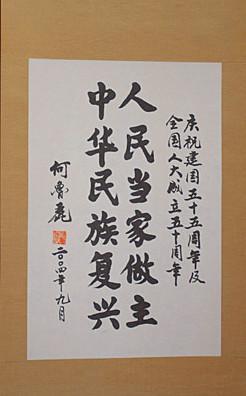 庆祝建国五十五周年及
全国人大成立五十周年
人民当家做主
中华民族复兴
何鲁丽
二〇〇四年九月